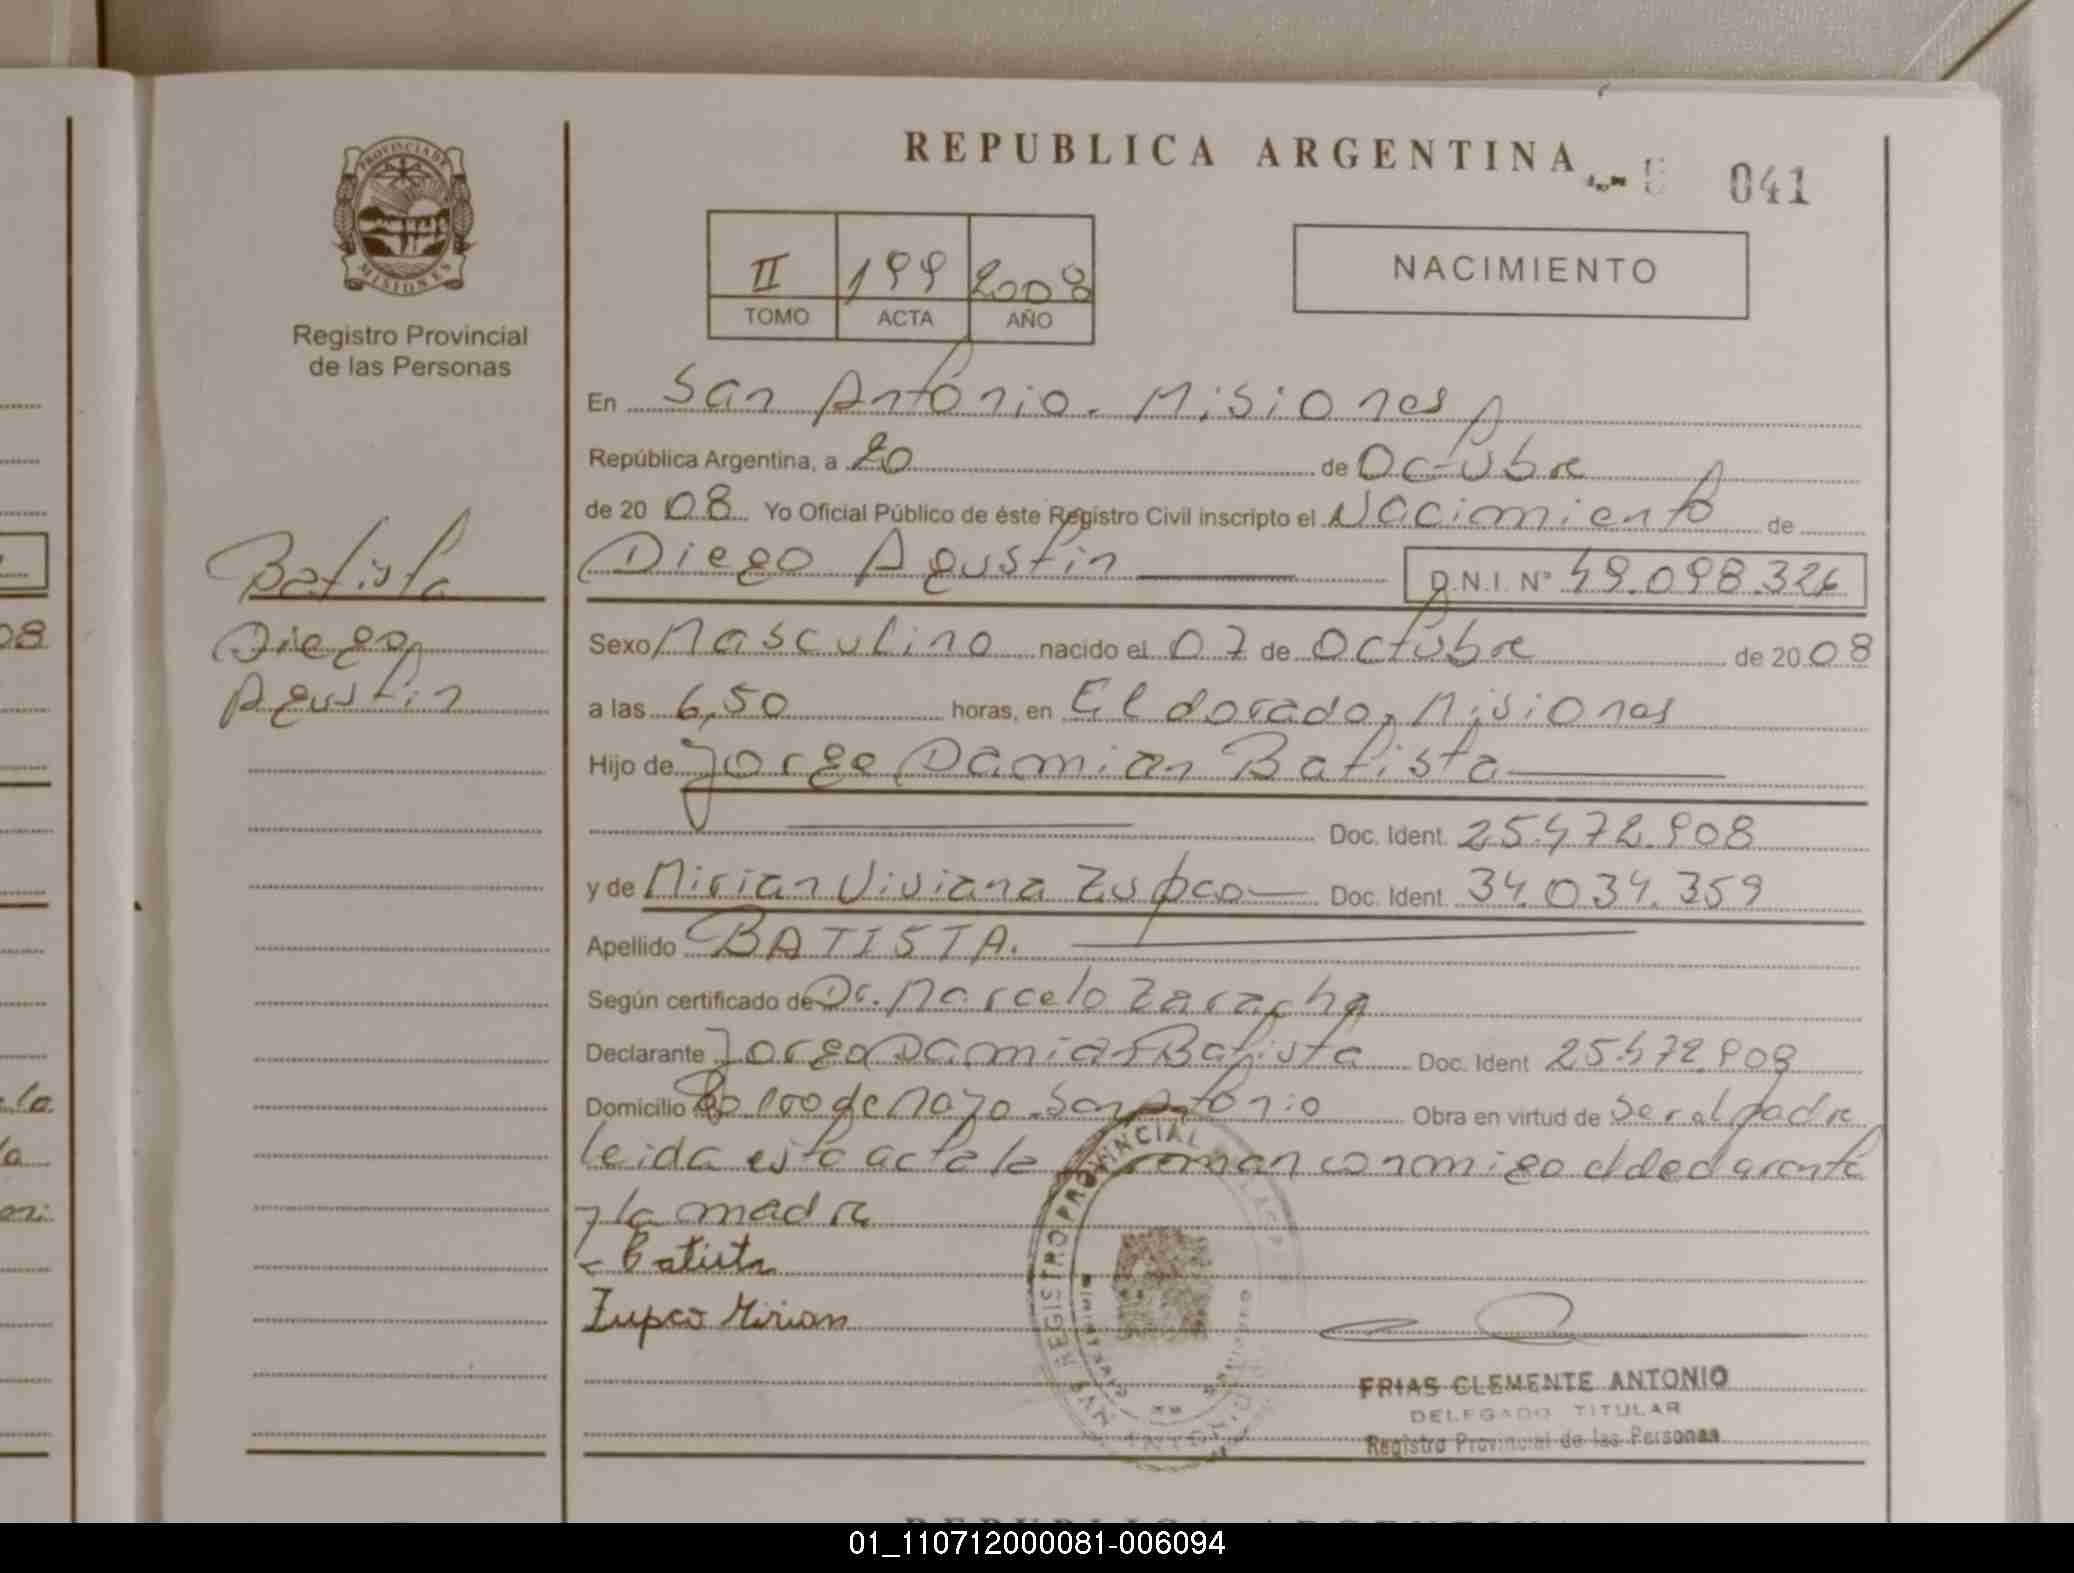 PROVINCIA DE
MISIONES
Registro Provincial
de las Personas
Batista
Diego
Agustin
REPUBLICA ARGENTINA
041
II 199 2008
TOMO ACTA AÑO
NACIMIENTO
En San Antonio. Misiones
República Argentina, a 20 de Octubre
de 2008 Yo Oficial Público de éste Registro Civil inscripto el Nacimiento de
Diego Agustin D.N.I. Nº 49.098.326
Sexo Masculino nacido el 07 de Octubre de 2008
a las 6,50 horas, en Eldorado, Misiones
Hijo de Jorge Damian Batista
Doc. Ident. 25.472.908
y de Mirian Viviana Zupco Doc. Ident. 34.034.359
Apellido BATISTA.
Según certificado de Dr. Marcelo Zaracho
Declarante Jorge Damian Batista Doc. Ident 25.472.908
Domicilio de Mayo. San Antonio Obra en virtud de Ser al padre
leida esta acta la firman conmigo el declarante
y la madre
Batista
Zupco Mirian
REGISTRO PROVINCIAL
FRIAS CLEMENTE ANTONIO
DELEGADO TITULAR
Registro Provincial de las Personas
REPUBLICA ARGENTINA
08
la
01_110712000081-006094